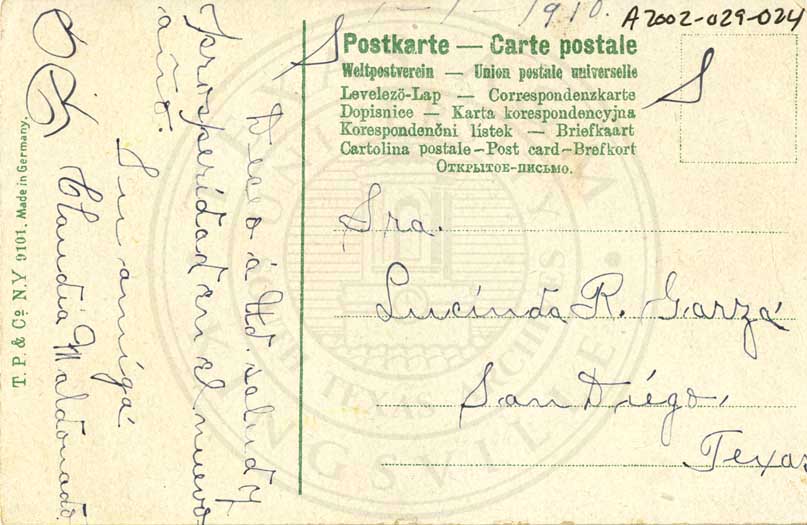 1-1-1910.
A2002-029-024
Postkarte — Carte postale
Weltpostverein — Union postale universelle
Levelező-Lap — Correspondenzkarte
Dopisnice — Karta korespondencyjna
Korespondenční lístek — Briefkaart
Cartolina postale — Post card — Brefkort
Открытое-письмо.
Sra.
Lucinda R. Garza
San Diégo,
Texas
Deseo á Ud. salud y
prosperidad en el nuevo
año.
Su amiga
Claudia Maldonado.
T. P. & Co. N.Y 9101. Made in Germany.
SOUTH TEXAS ARCHIVES
KINGSVILLE